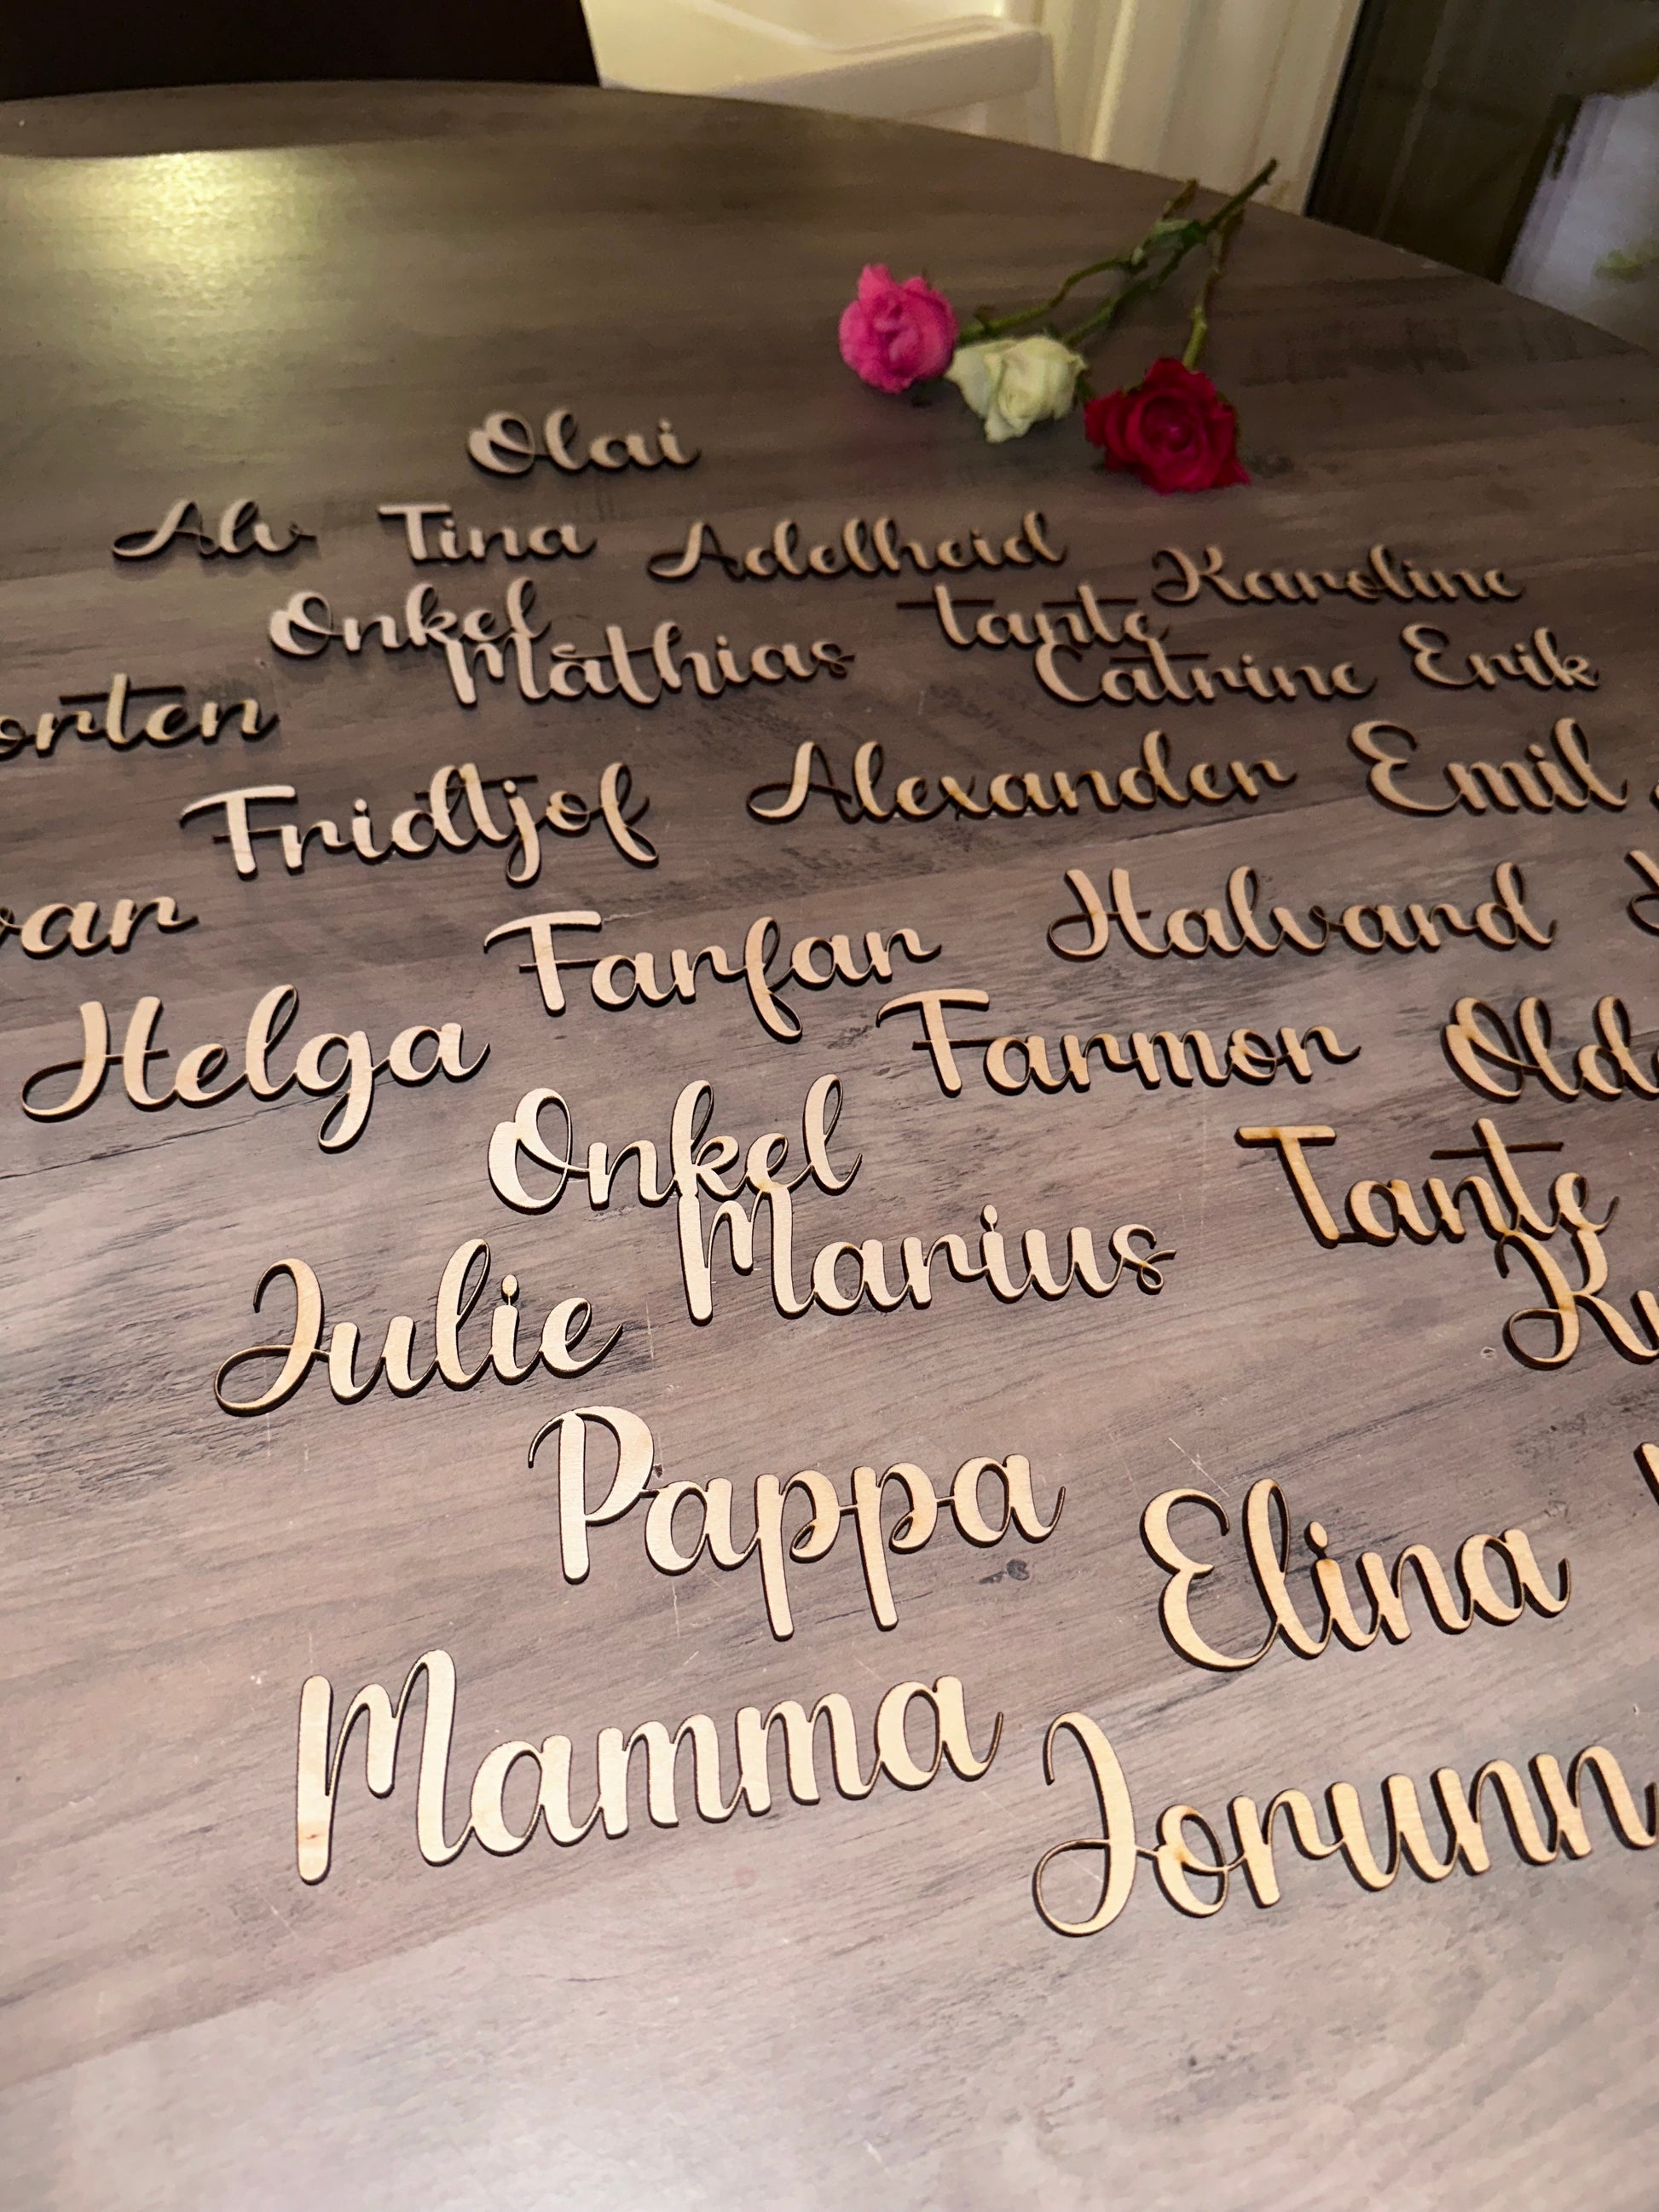 Olai
Alv Tina Adelheid Karoline
Onkel
Mathias
tante
Catrine
Erik
orten
Fridtjof Alexander Emil
var
Farfar Halvard
Helga
Farmor
Onkel
Marius
Tante
Julie
Pappa
Elina
Mamma
Jorunn